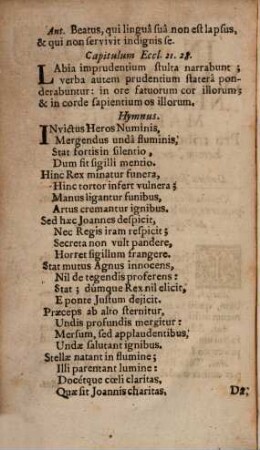 Ant. Beatus, qui linguâ suâ non est lapsus,
& qui non servivit indignis se.
Capitulum Eccl. 21. 28.
LAbia imprudentium stulta narrabunt;
verba autem prudentium staterâ pon-
derabuntur: in ore fatuorum cor illorum;
& in corde sapientium os illorum.
Hymnus.
INvictus Heros Numinis,
Mergendus undâ fluminis,
Stat fortis in silentio,
Dum fit sigilli mentio.
Hinc Rex minatur funera,
Hinc tortor infert vulnera;
Manus ligantur funibus,
Artus cremantur ignibus.
Sed hæc Joannes despicit,
Nec Regis iram respicit;
Secreta non vult pandere,
Horret sigillum frangere.
Stat mutus Agnus innocens,
Nil de tegendis proferens:
Stat; dúmque Rex nil elicit,
E ponte Justum dejicit.
Præceps ab alto sternitur,
Undis profundis mergitur:
Mersum, sed applaudentibus,
Undæ salutant ignibus.
Stellæ natant in flumine;
Illi parentant lumine:
Docétque cœli claritas,
Quæ sit Joannis charitas.